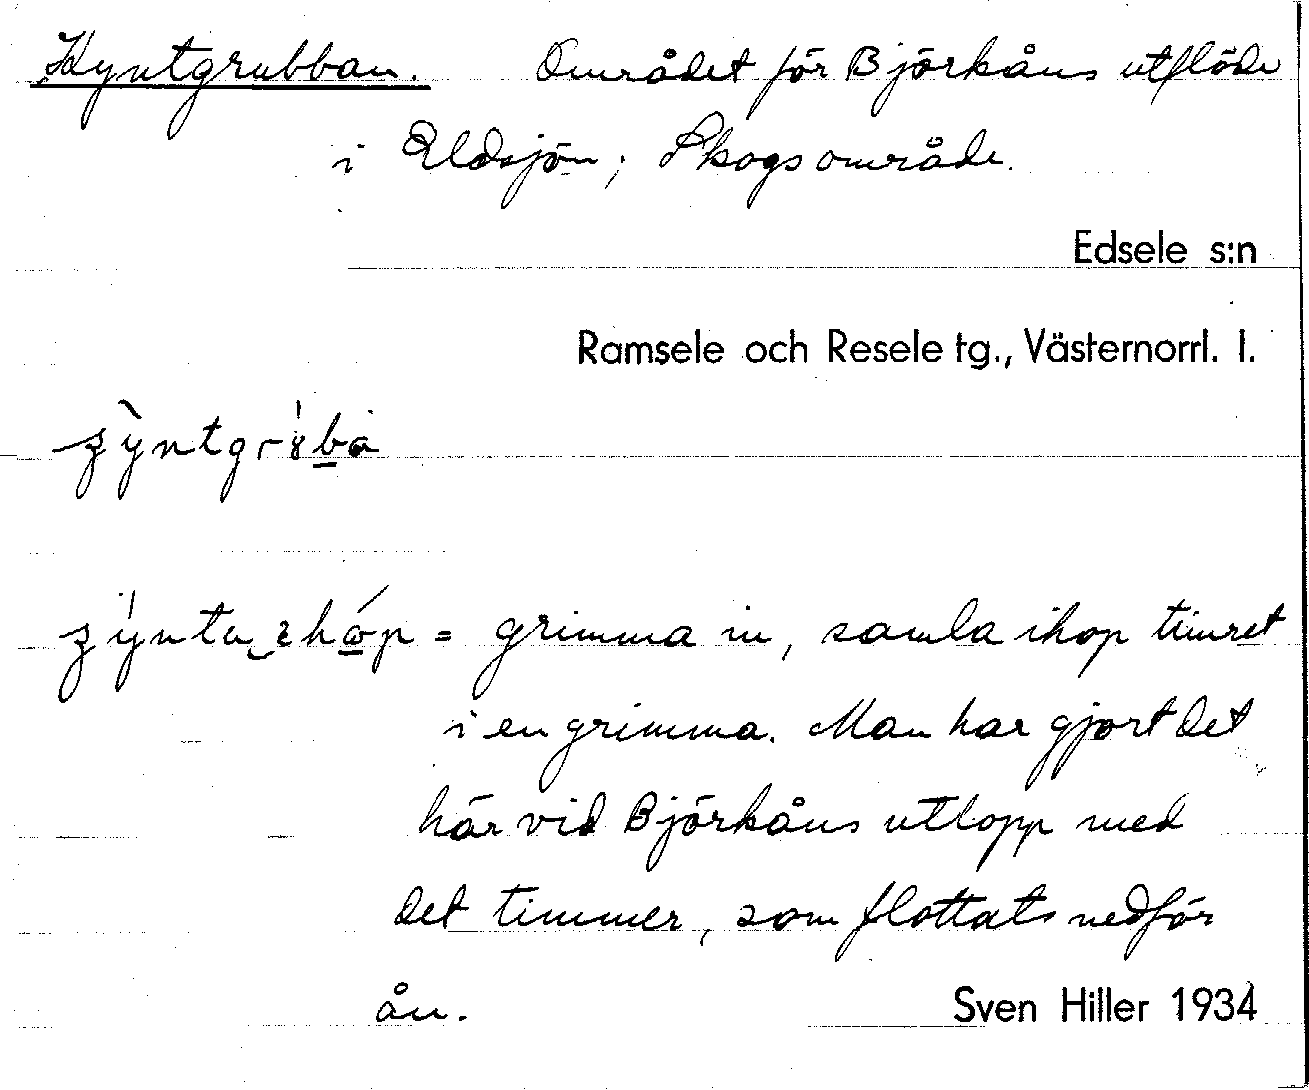 Kyntgrubban. Området för Björkåns utflöde
i Eldsjön; Skogsområde.
Edsele s:n
Ramsele och Resele tg., Västernorrl. l.
= grimma in, samla ihop timret
i en grimma. Man har gjort det
här vid Björkåns utlopp med
det timmer, som flottats nedför
ån.
Sven Hiller 1934